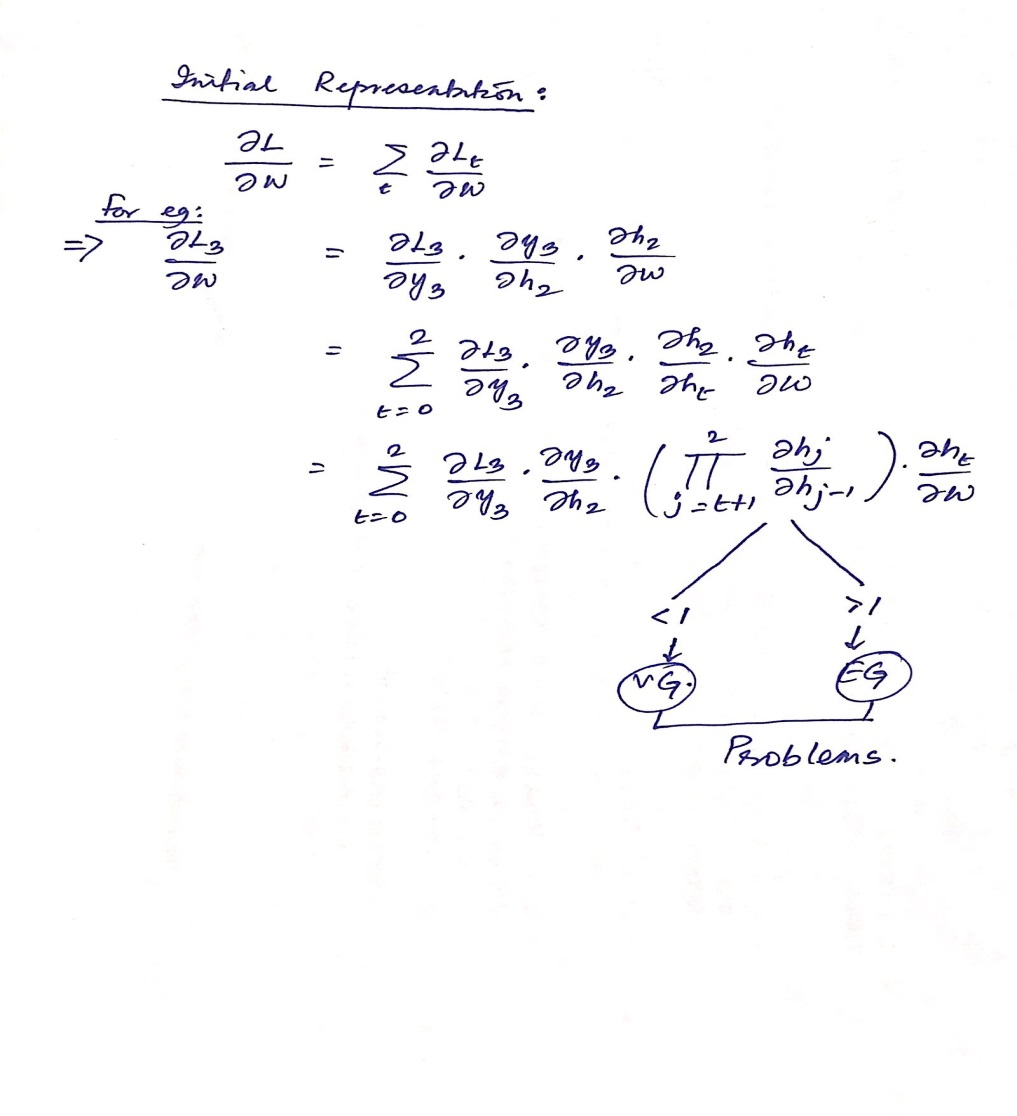 Initial Representation:
∂L/∂w = Σ_t ∂L_t/∂w
for eg:
=> ∂L₃/∂w = ∂L₃/∂y₃ . ∂y₃/∂h₂ . ∂h₂/∂w
= Σ_{t=0}^{2} ∂L₃/∂y₃ . ∂y₃/∂h₂ . ∂h₂/∂h_t . ∂h_t/∂w
= Σ_{t=0}^{2} ∂L₃/∂y₃ . ∂y₃/∂h₂ . (Π_{j=t+1}^{2} ∂h_j/∂h_{j-1}) . ∂h_t/∂w
<1 >1
↓ ↓
VG. EG
Problems.